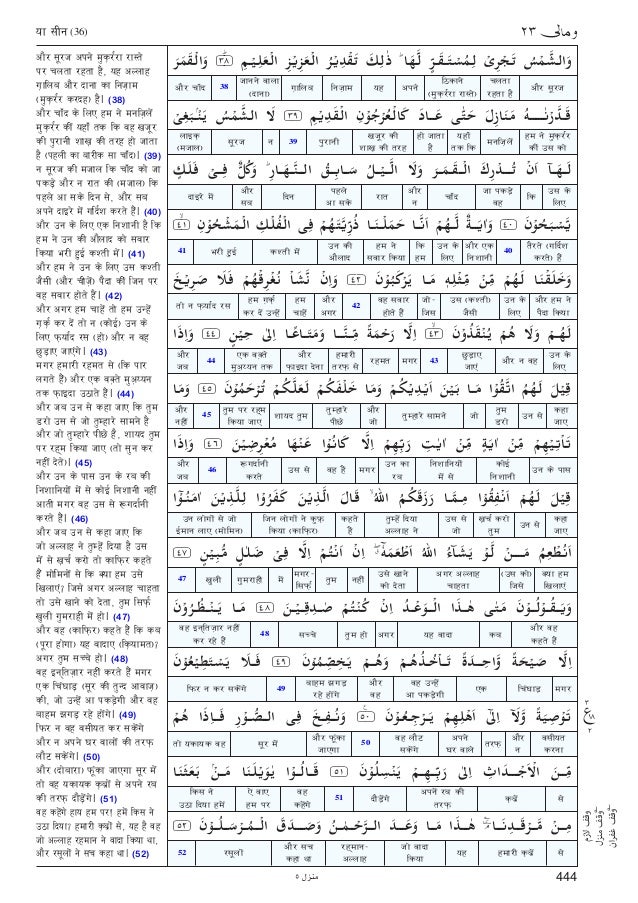 या सीन (36)
ومالى ٢٣
और सूरज अपने मुक़र्ररा रास्ते
पर चलता रहता है, यह अल्लाह
ग़ालिब और दाना का निज़ाम
(मुक़र्रर करदह) है। (38)
और चाँद के लिए हम ने मनज़िलें
मुक़र्रर कीं यहाँ तक कि वह खजूर
की पुरानी शाख़ की तरह हो जाता
है (पहली का बारीक सा चाँद)। (39)
न सूरज की मजाल कि चाँद को जा
पकड़े और न रात की (मजाल) कि
पहले आ सके दिन से, और सब
अपने दाइरे में गर्दिश करते हैं। (40)
और उन के लिए एक निशानी है कि
हम ने उन की औलाद को सवार
किया भरी हुई कश्ती में। (41)
और हम ने उन के लिए उस कश्ती
जैसी (और चीज़ें) पैदा कीं जिन पर
वह सवार होते हैं। (42)
और अगर हम चाहें तो हम उन्हें
ग़र्क़ कर दें तो न (कोई) उन के
लिए फ़र्याद रस (हो) और न वह
छुड़ाए जाएंगे। (43)
मगर हमारी रहमत से (कि पार
लगते हैं) और एक वक़्ते मुअय्यन
तक फ़ाइदा उठाते हैं। (44)
और जब उन से कहा जाए कि तुम
डरो उस से जो तुम्हारे सामने है
और जो तुम्हारे पीछे है, शायद तुम
पर रह्म किया जाए (तो सुन कर
नहीं देते)। (45)
और उन के पास उन के रब की
निशानियों में से कोई निशानी नहीं
आती मगर वह उस से रूगर्दानी
करते हैं। (46)
और जब उन से कहा जाए कि
जो अल्लाह ने तुम्हें दिया है उस
में से ख़र्च करो तो काफ़िर कहते
हैं मोमिनों से कि क्या हम उसे
खिलाएं? जिसे अगर अल्लाह चाहता
तो उसे खाने को देता, तुम सिर्फ़
खुली गुमराही में हो। (47)
और वह (काफ़िर) कहते हैं कि कब
(पूरा होगा) यह वादाए (क़ियामत)?
अगर तुम सच्चे हो। (48)
वह इन्तिज़ार नहीं करते हैं मगर
एक चिंघाड़ (सूर की तुन्द आवाज़)
की, जो उन्हें आ पकड़ेगी और वह
बाहम झगड़ रहे होंगे। (49)
फिर न वह वसीयत कर सकेंगे
और न अपने घर वालों की तरफ़
लौट सकेंगे। (50)
और (दोबारा) फूंका जाएगा सूर में
तो वह यकायक क़ब्रों से अपने रब
की तरफ़ दौड़ेंगे। (51)
वह कहेंगे हाय हम पर! हमें किस ने
उठा दिया? हमारी क़ब्रों से, यह है वह
जो अल्लाह रहमान ने वादा किया था,
और रसूलों ने सच कहा था। (52)
وَالشَّمْسُ تَجْرِىْ لِمُسْتَقَرٍّ لَّهَا ؕ ذٰلِكَ تَقْدِيْرُ الْعَزِيْزِ الْعَلِيْمِ ﴿٣٨﴾ وَالْقَمَرَ
और सूरज चलता रहता है ठिकाने (मुक़र्ररा रास्ते) अपने यह निज़ाम ग़ालिब जानने वाला (दाना) 38 और चाँद
قَدَّرْنٰهُ مَنَازِلَ حَتّٰى عَادَ كَالْعُرْجُوْنِ الْقَدِيْمِ ﴿٣٩﴾ لَا الشَّمْسُ يَنْۢبَغِىْ
हम ने मुक़र्रर की उस को मनज़िलें यहाँ तक कि हो जाता है खजूर की शाख़ की तरह पुरानी 39 न सूरज लाइक़ (मजाल)
لَهَاۤ اَنْ تُدْرِكَ الْقَمَرَ وَلَا الَّيْلُ سَابِقُ النَّهَارِ ؕ وَكُلٌّ فِىْ فَلَكٍ
उस के लिए कि जा पकड़े वह चाँद और न रात पहले आ सके दिन और सब दाइरे में
يَّسْبَحُوْنَ ﴿٤٠﴾ وَاٰيَةٌ لَّهُمْ اَنَّا حَمَلْنَا ذُرِّيَّتَهُمْ فِى الْفُلْكِ الْمَشْحُوْنِ ﴿٤١﴾
तैरते (गर्दिश करते) हैं 40 और एक निशानी उन के लिए कि हम हम ने सवार किया उन की औलाद कश्ती में भरी हुई 41
وَخَلَقْنَا لَهُمْ مِّنْ مِّثْلِهٖ مَا يَرْكَبُوْنَ ﴿٤٢﴾ وَاِنْ نَّشَاْ نُغْرِقْهُمْ فَلَا صَرِيْخَ
और हम ने पैदा किया उन के लिए उस (कश्ती) जैसी जो-जिस वह सवार होते हैं 42 और अगर हम चाहें हम ग़र्क़ कर दें उन्हें तो न फ़र्याद रस
لَهُمْ وَلَا هُمْ يُنْقَذُوْنَ ﴿٤٣﴾ اِلَّا رَحْمَةً مِّنَّا وَمَتَاعًا اِلٰى حِيْنٍ ﴿٤٤﴾ وَاِذَا
उन के लिए और न वह छुड़ाए जाएं 43 मगर रहमत हमारी तरफ़ से और फ़ाइदा देना एक वक़्ते मुअय्यन तक 44 और जब
قِيْلَ لَهُمُ اتَّقُوْا مَا بَيْنَ اَيْدِيْكُمْ وَمَا خَلْفَكُمْ لَعَلَّكُمْ تُرْحَمُوْنَ ﴿٤٥﴾ وَمَا
कहा जाए उन से तुम डरो जो तुम्हारे सामने और जो तुम्हारे पीछे शायद तुम तुम पर रह्म किया जाए 45 और नहीं
تَاْتِيْهِمْ مِّنْ اٰيَةٍ مِّنْ اٰيٰتِ رَبِّهِمْ اِلَّا كَانُوْا عَنْهَا مُعْرِضِيْنَ ﴿٤٦﴾ وَاِذَا
उन के पास कोई निशानी निशानियों में से उन का रब मगर वह हैं उस से रूगर्दानी करते 46 और जब
قِيْلَ لَهُمْ اَنْفِقُوْا مِمَّا رَزَقَكُمُ اللّٰهُ ۙ قَالَ الَّذِيْنَ كَفَرُوْا لِلَّذِيْنَ اٰمَنُوْۤا
कहा जाए उन से ख़र्च करो तुम उस से जो तुम्हें दिया अल्लाह ने कहते हैं जिन लोगों ने कुफ़्र किया (काफ़िर) उन लोगों से जो ईमान लाए (मोमिन)
اَنُطْعِمُ مَنْ لَّوْ يَشَآءُ اللّٰهُ اَطْعَمَهٗۤ ۖ اِنْ اَنْتُمْ اِلَّا فِىْ ضَلٰلٍ مُّبِيْنٍ ﴿٤٧﴾
क्या हम खिलाएं (उस को) जिसे अगर अल्लाह चाहता उसे खाने को देता नहीं तुम मगर-सिर्फ़ में गुमराही खुली 47
وَيَقُوْلُوْنَ مَتٰى هٰذَا الْوَعْدُ اِنْ كُنْتُمْ صٰدِقِيْنَ ﴿٤٨﴾ مَا يَنْظُرُوْنَ
और वह कहते हैं कब यह वादा अगर तुम हो सच्चे 48 वह इन्तिज़ार नहीं कर रहे हैं
اِلَّا صَيْحَةً وَّاحِدَةً تَاْخُذُهُمْ وَهُمْ يَخِصِّمُوْنَ ﴿٤٩﴾ فَلَا يَسْتَطِيْعُوْنَ
मगर चिंघाड़ एक वह उन्हें आ पकड़ेगी और वह बाहम झगड़ रहे होंगे 49 फिर न कर सकेंगे
تَوْصِيَةً وَّلَاۤ اِلٰٓى اَهْلِهِمْ يَرْجِعُوْنَ ﴿٥٠﴾ وَنُفِخَ فِى الصُّوْرِ فَاِذَا هُمْ
वसीयत करना और न तरफ़ अपने घर वाले वह लौट सकेंगे 50 और फूंका जाएगा सूर में तो यकायक वह
مِّنَ الْاَجْدَاثِ اِلٰى رَبِّهِمْ يَنْسِلُوْنَ ﴿٥١﴾ قَالُوْا يٰوَيْلَنَا مَنْۢ بَعَثَنَا
से क़ब्रें अपने रब की तरफ़ दौड़ेंगे 51 वह कहेंगे ऐ वाए हम पर किस ने उठा दिया हमें
مِنْ مَّرْقَدِنَا ۘ هٰذَا مَا وَعَدَ الرَّحْمٰنُ وَصَدَقَ الْمُرْسَلُوْنَ ﴿٥٢﴾
से हमारी क़ब्रें यह जो वादा किया रहमान-अल्लाह और सच कहा था रसूलों 52
وقف لازم
وقف منزل
وقف غفران
منزل ٥
444